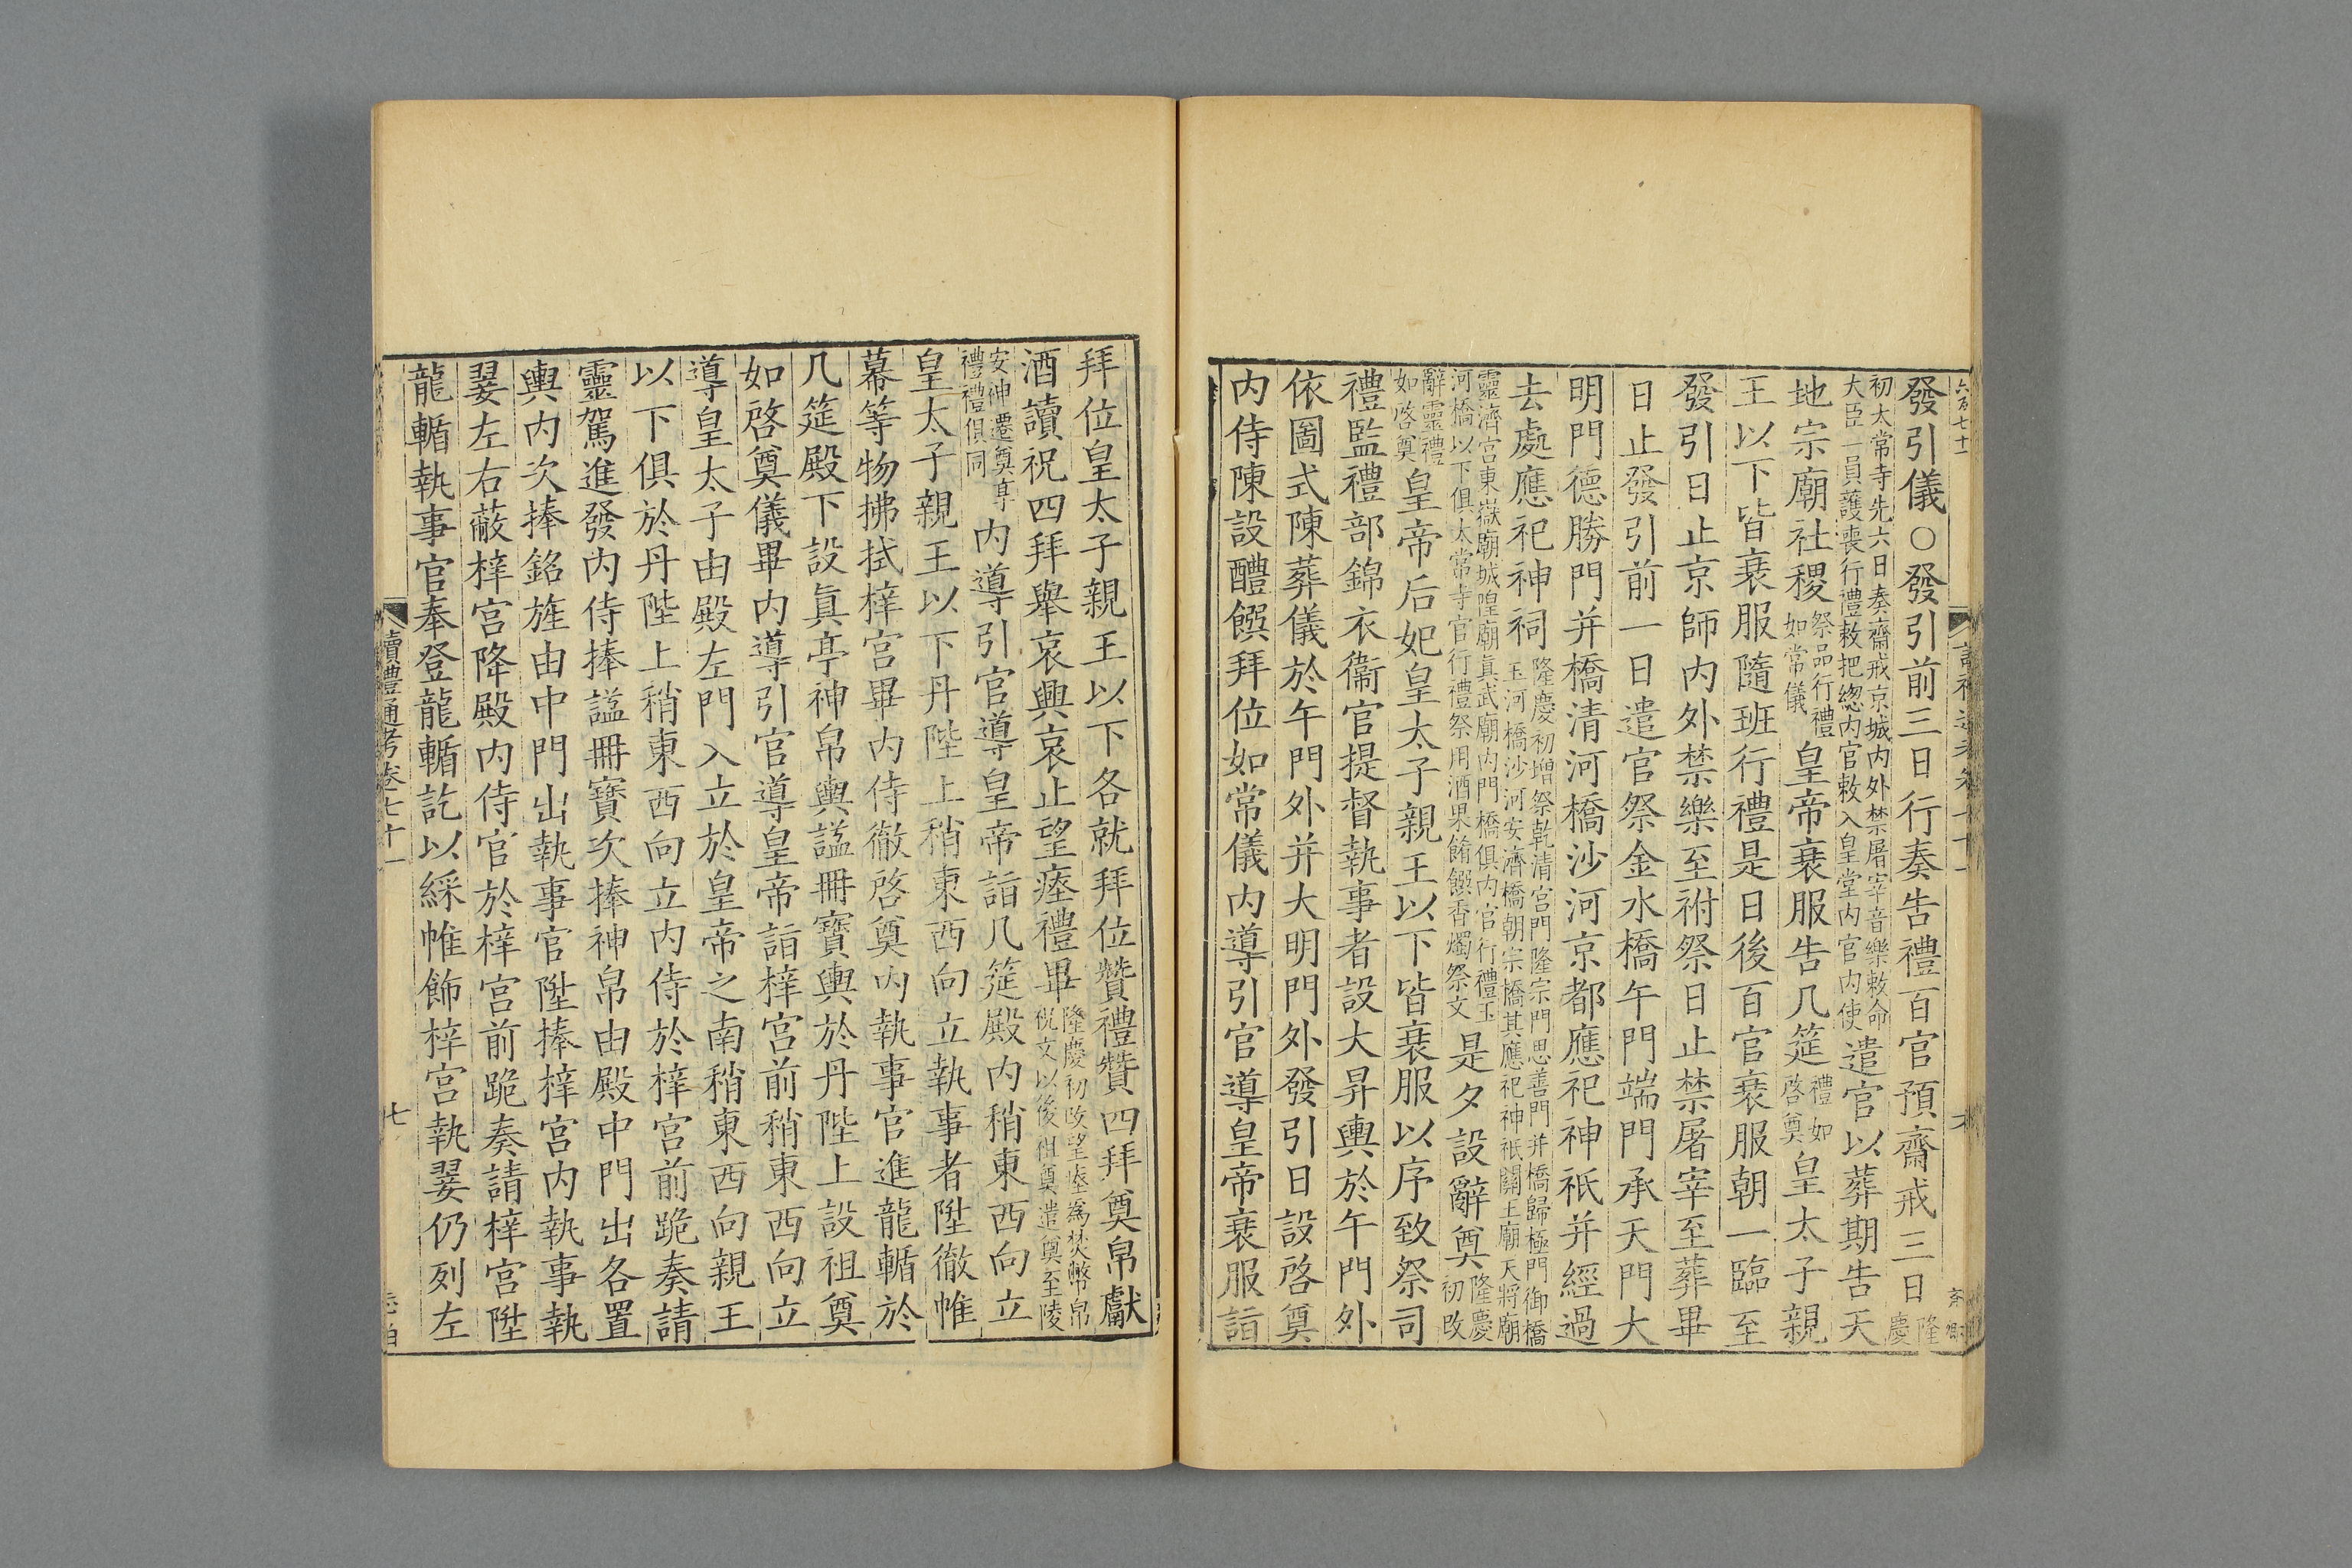 發引儀○發引前三日行奏告禮百官預齋戒三日隆慶
初太常寺先六日奏齋戒京城內外禁屠宰音樂敕命
大臣一員護喪行禮敕把緫內官敕入皇堂內官內使
遣官以葬期告天
地宗廟社稷祭品行禮如常儀皇帝衰服告几筵禮如啓奠皇太子親
王以下皆衰服隨班行禮是日後百官衰服朝一臨至
發引日止京師內外禁樂至祔祭日止禁屠宰至葬畢
日止發引前一日遣官祭金水橋午門端門承天門大
明門德勝門并橋清河橋沙河京都應祀神祇并經過
去處應祀神祠
隆慶初增祭乾清宮門隆宗門思善門并橋歸極門御橋
玉河橋沙河安濟橋朝宗橋其應祀神祇關王廟天將廟
靈濟宮東嶽廟城隍廟眞武廟內門橋俱內官行禮玉
河橋以下俱太常寺官行禮祭用酒果餚饌香燭祭文
是夕設辭奠隆慶初改
辭靈禮如啓奠皇帝后妃皇太子親王以下皆衰服以序致祭司
禮監禮部錦衣衞官提督執事者設大昇輿於午門外
依圖式陳葬儀於午門外并大明門外發引日設啓奠
內侍陳設醴饌拜位如常儀內導引官導皇帝衰服詣
拜位皇太子親王以下各就拜位贊禮贊四拜奠帛獻
酒讀祝四拜舉哀興哀止望瘞禮畢
隆慶初改望瘞為焚幣帛
祝文以後祖奠遣奠至陵
安神遷奠享
禮禮俱同
內導引官導皇帝詣几筵殿內稍東西向立
皇太子親王以下丹陛上稍東西向立執事者陞徹帷
幕等物拂拭梓宮畢內侍徹啓奠內執事官進龍輴於
几筵殿下設眞亭神帛輿謚冊寶輿於丹陛上設祖奠
如啓奠儀畢內導引官導皇帝詣梓宮前稍東西向立
導皇太子由殿左門入立於皇帝之南稍東西向親王
以下俱於丹陛上稍東西向立內侍於梓宮前跪奏請
靈駕進發內侍捧謚冊寶次捧神帛由殿中門出各置
輿內次捧銘旌由中門出執事官陞捧梓宮內執事執
翣左右蔽梓宮降殿內侍官於梓宮前跪奏請梓宮陞
龍輴執事官奉登龍輴訖以綵帷飾梓宮執翣仍列左
讀禮通考卷七十一
七